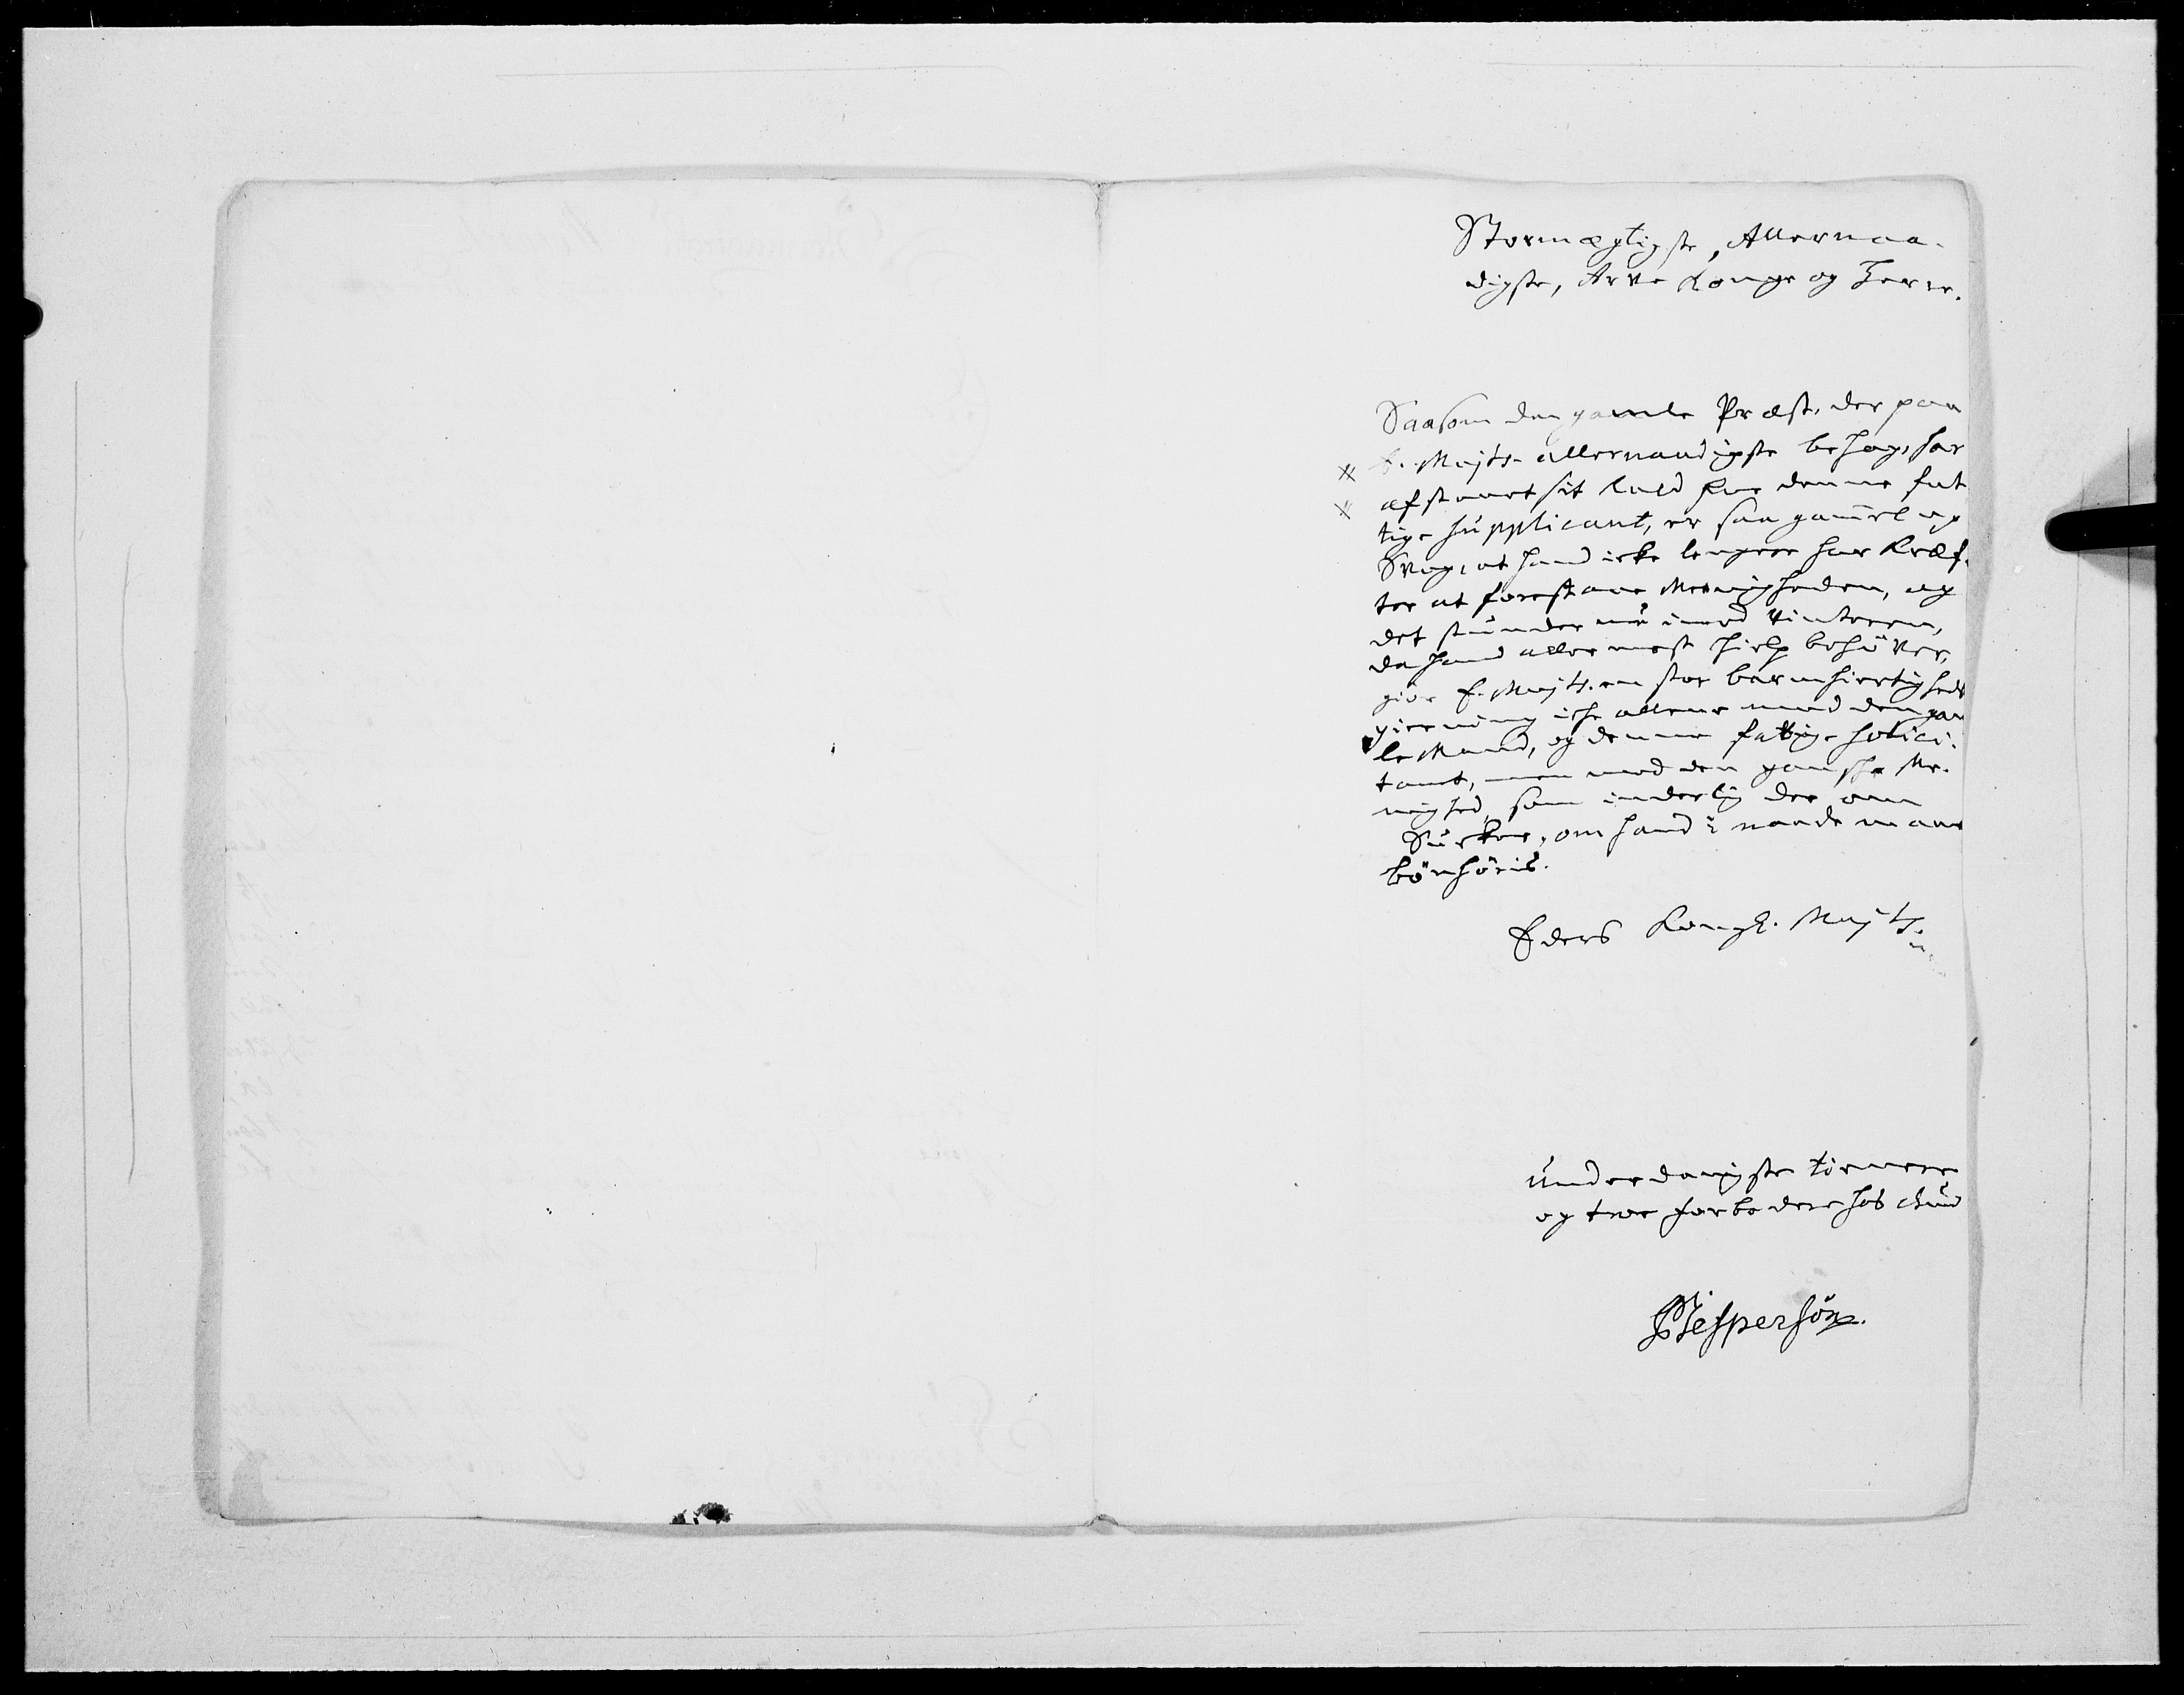 Stormægtigste, Allernaa-
digste, Arve Konge og Herre.
Saasom den gamle Præst, der paa
E. Majts. allernaadigste behag, har
afstaaet sit Kald for denne fat
tige supplicant, er saa gammel og
Svag, at hand icke lengere har Kræf-
ter at forestaae Menigheden, og
det stunder nu imod Vinteren,
da hand aller mest hielp behöver,
giör E. Majts. en stor barmhiertigheds
gierning iche allene mod den gam
le Mand, og denne fattige solici-
tant, men mod den gandske Me-
nighed, som inderlig der om
Sucker, om hand i naade maae
bönhöris.
Eders Kongl. Majts.
underdanigste tienere
og troe forbedere hos Gud
Jespersön.